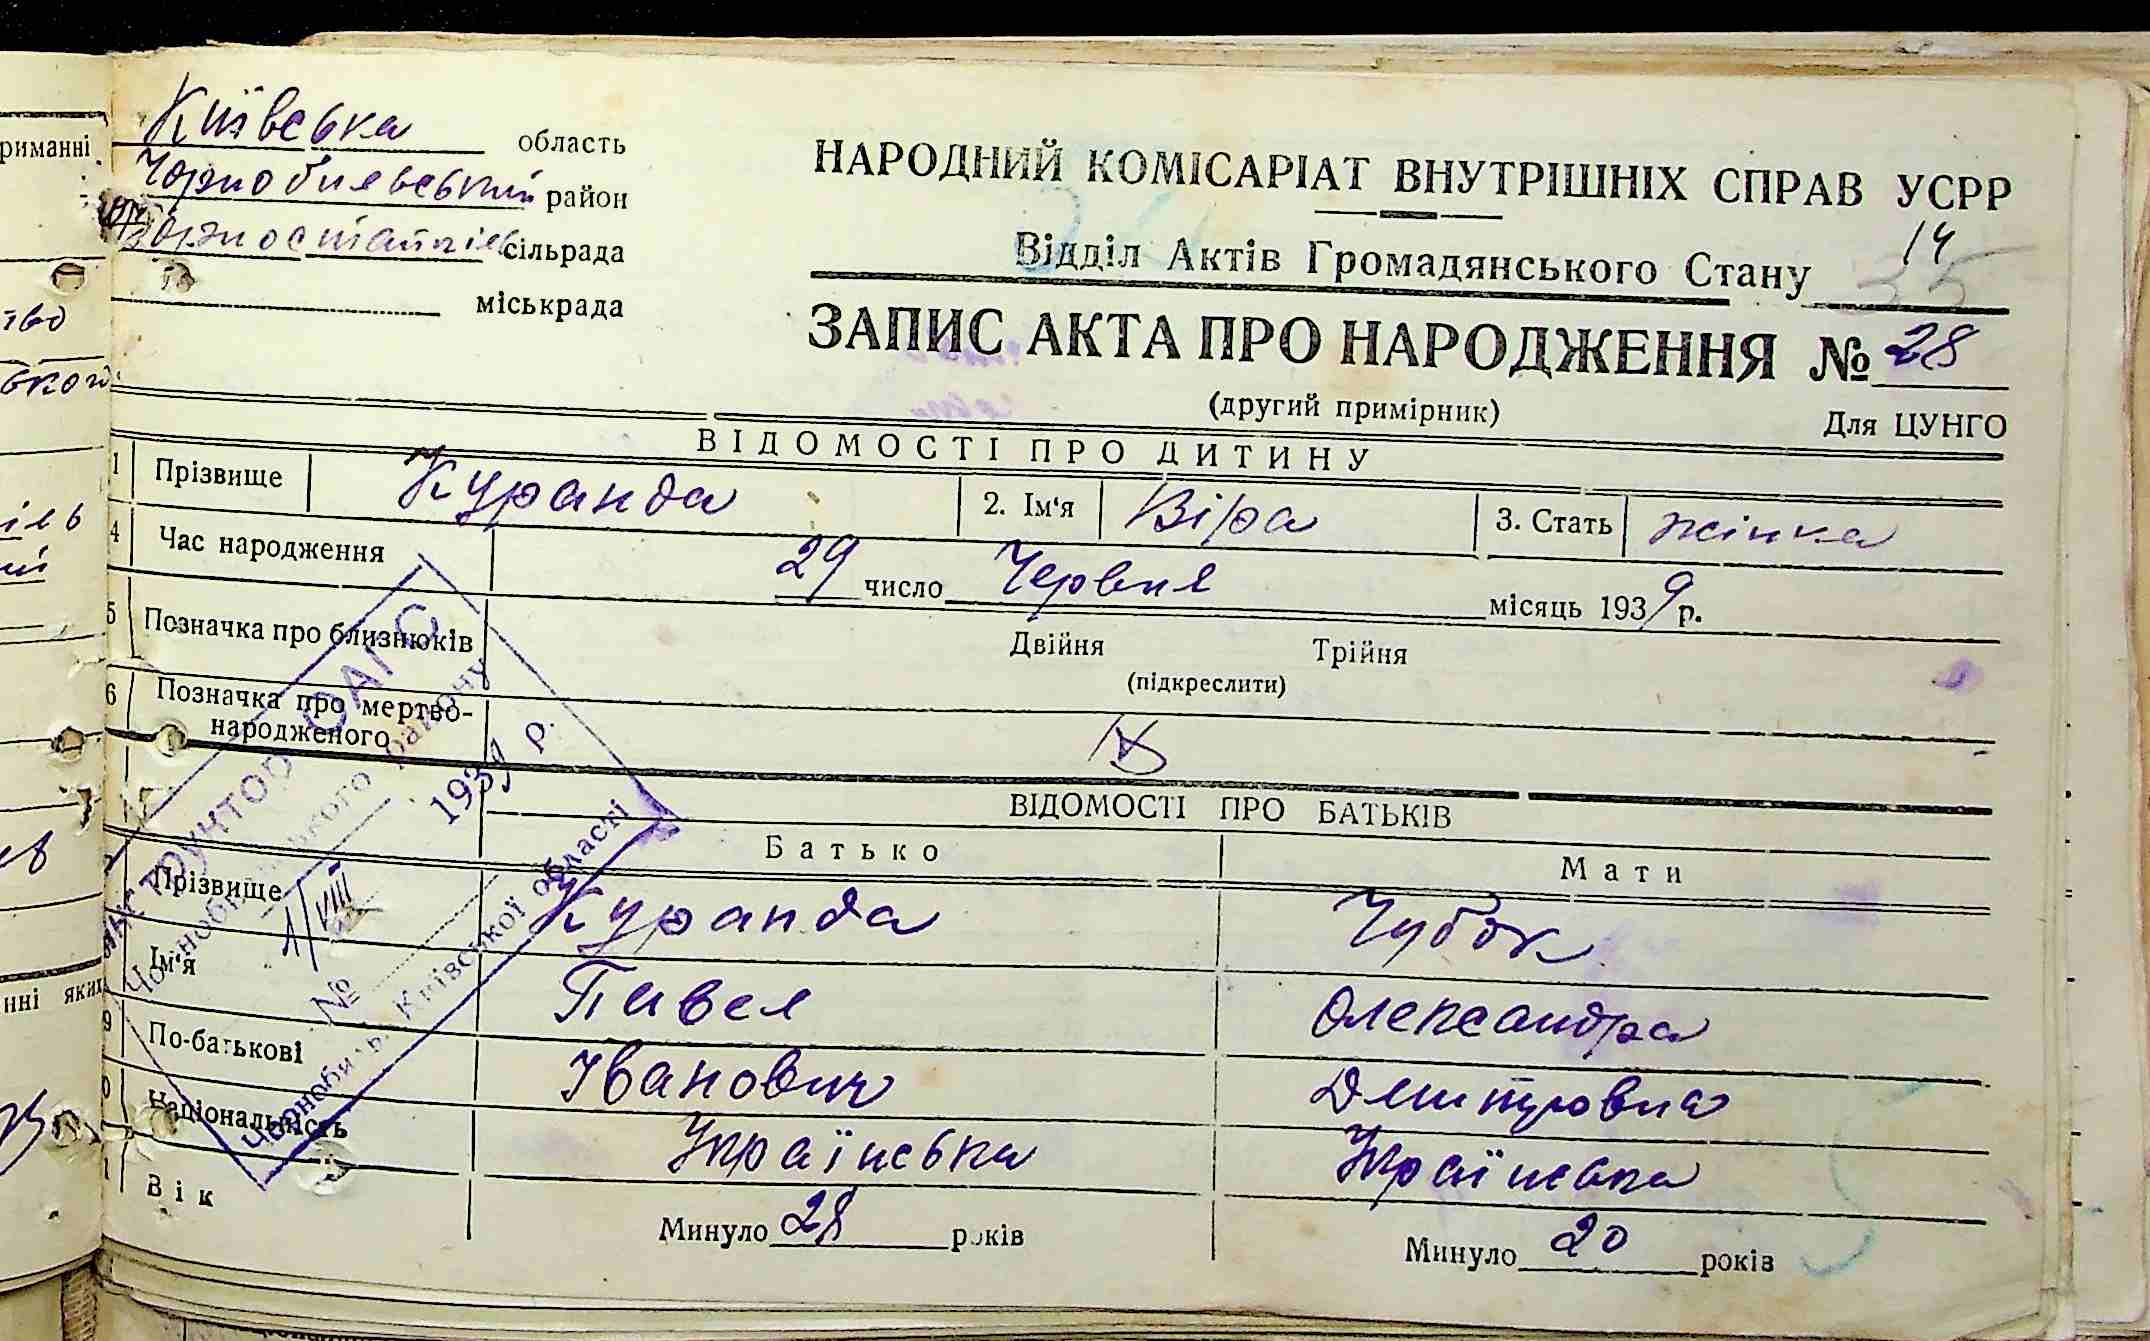 Київська область
Чорнобильський район
Горностайпіль сільрада
міськрада
НАРОДНИЙ КОМІСАРІАТ ВНУТРІШНІХ СПРАВ УСРР
Відділ Актів Громадянського Стану
14
35
ЗАПИС АКТА ПРО НАРОДЖЕННЯ № 28
(другий примірник)
Для ЦУНГО
ВІДОМОСТІ ПРО ДИТИНУ
1 Прізвище Куранда 2. Ім'я Віра 3. Стать жінка
4 Час народження 29 число Червня місяць 1939 р.
5 Позначка про близнюків Двійня Трійня
(підкреслити)
6 Позначка про мертво-
народженого
ВІДОМОСТІ ПРО БАТЬКІВ
Батько Мати
Прізвище Куранда Чубок
Ім'я Павел Олександра
9 По-батькові Іванович Дмитровна
Національність Українська Українська
Вік Минуло 28 років Минуло 20 років
ОАГС
1939 р.
1/VIII
№
Київської області
риманні
нні яких